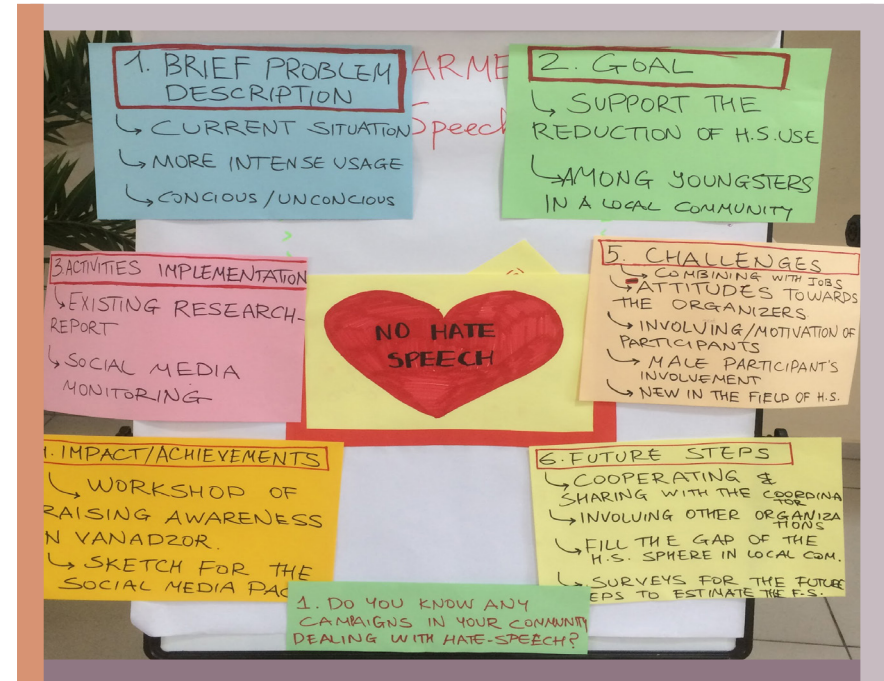 ARME
Speech
1. BRIEF PROBLEM
DESCRIPTION
↳ CURRENT SITUATION
↳ MORE INTENSE USAGE
↳ CONCIOUS / UNCONCIOUS
2. GOAL
↳ SUPPORT THE
REDUCTION OF H.S. USE
↳ AMONG YOUNGSTERS
IN A LOCAL COMMUNITY
3. ACTIVITIES IMPLEMENTATION
↳ EXISTING RESEARCH-
REPORT
↳ SOCIAL MEDIA
MONITORING
NO HATE
SPEECH
5. CHALLENGES
↳ COMBINING WITH JOBS
↳ ATTITUDES TOWARDS
THE ORGANIZERS
↳ INVOLVING/MOTIVATION OF
PARTICIPANTS
↳ MALE PARTICIPANT'S
INVOLVEMENT
↳ NEW IN THE FIELD OF H.S.
4. IMPACT/ACHIEVEMENTS
↳ WORKSHOP OF
RAISING AWARENESS
IN VANADZOR.
↳ SKETCH FOR THE
SOCIAL MEDIA PAG
6. FUTURE STEPS
↳ COOPERATING &
SHARING WITH THE COORDINA
TOR
↳ INVOLVING OTHER ORGANIZA
TIONS
↳ FILL THE GAP OF THE
H.S. SPHERE IN LOCAL COM.
↳ SURVEYS FOR THE FUTURE
EPS TO ESTIMATE THE F.S.
1. DO YOU KNOW ANY
CAMPAIGNS IN YOUR COMMUNITY
DEALING WITH HATE-SPEECH?